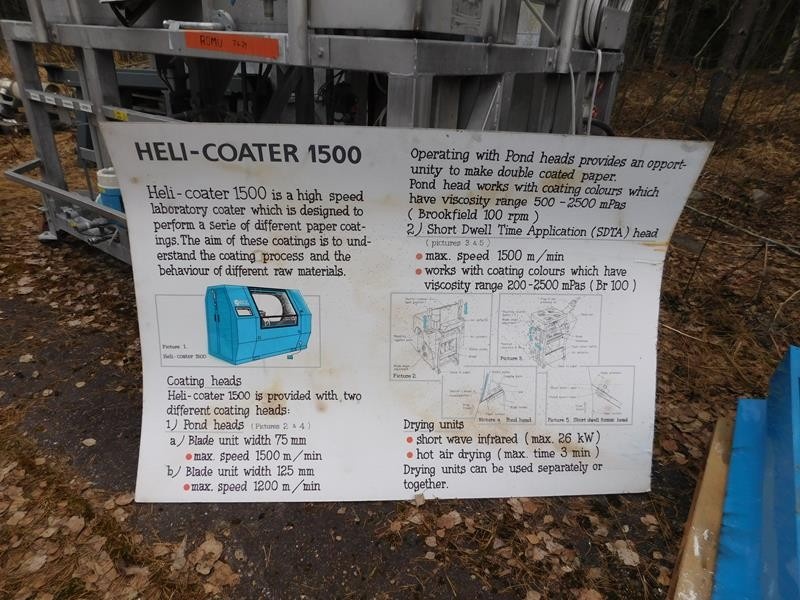 ROMU 7421
HELI-COATER 1500
Heli-coater 1500 is a high speed
laboratory coater which is designed to
perform a serie of different paper coat-
ings. The aim of these coatings is to und-
erstand the coating process and the
behaviour of different raw materials.
Picture 1.
Heli-coater 1500
Coating heads
Heli-coater 1500 is provided with two
different coating heads:
1) Pond heads (Pictures 2 & 4)
a) Blade unit width 75 mm
• max. speed 1500 m/min
b) Blade unit width 125 mm
• max. speed 1200 m/min
Operating with Pond heads provides an opport-
unity to make double coated paper.
Pond head works with coating colours which
have viscosity range 500-2500 mPas
(Brookfield 100 rpm)
2) Short Dwell Time Application (SDTA) head
(pictures 3 & 5)
• max. speed 1500 m/min
• works with coating colours which have
viscosity range 200-2500 mPas (Br 100)
Picture 2.
Picture 3.
Picture 4. Pond head
Picture 5. Short dwell format head
Drying units
• short wave infrared (max. 26 kW)
• hot air drying (max. time 3 min)
Drying units can be used separately or
together.